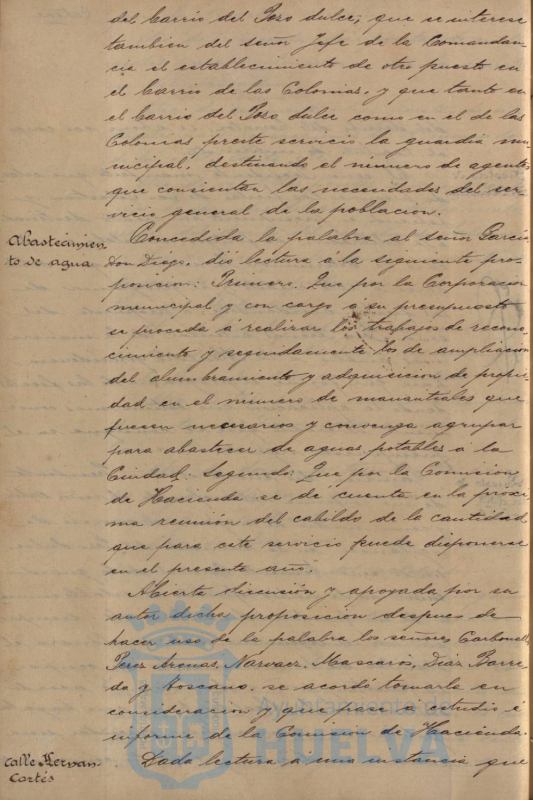 del barrio del Pozo dulce; que se interese
tambien del señor Jefe de la Comandan-
cia el establecimiento de otro puesto en
el barrio de las Colonias, y que tanto en
el barrio del Pozo dulce como en el de las
Colonias preste servicio la guardia mu-
nicipal, destinando el número de agentes
que consientan las necesidades del ser-
vicio general de la poblacion.
Abastecimien-
to de agua
Concedida la palabra al señor Garcia
Don Diego, dió lectura á la seguiente pro-
posicion: Primero. Que por la Corporacion
municipal y con cargo á su presupuesto
se proceda á realizar los trabajos de recono-
cimiento y seguidamente los de ampliacion
del alumbramiento y adquisicion de propie-
dad en el número de manantiales que
fuesen necesarios y convenga agrupar
para abastecer de aguas potables á la
Ciudad. Segundo: Que por la Comision
de Hacienda se de cuenta en la próxi-
ma reunión del cabildo de la cantidad
que para este servicio puede disponerse
en el presente año.
Abierta discusión y apoyada por su
autor dicha proposicion despues de
hacer uso de la palabra los señores Carbonell,
Perez Arenas, Narvaez, Mascarós, Diaz Barre-
do y Toscano, se acordó tomarla en
consideracion y que pase á estudio é
informe de la Comision de Hacienda.
calle Hernan
Cortés
Dada lectura á una instancia que
Ayuntamiento de
HUELVA